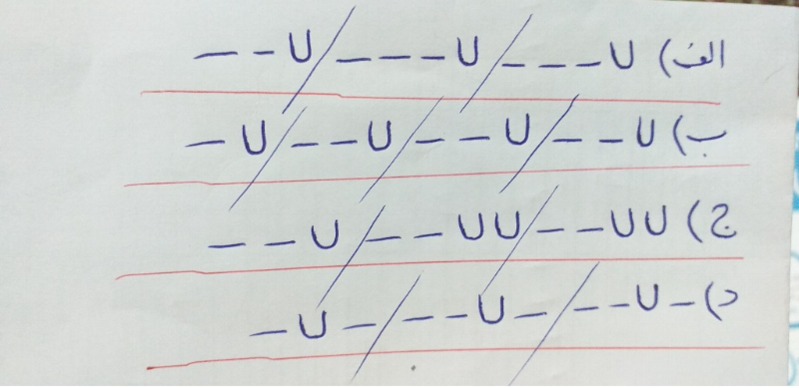 الف) U – – – / U – – – / U – –
ب) U – – / U – – / U – – / U –
ج) U U – – / U U – – / U – –
د) – U – – / – U – – / – U –